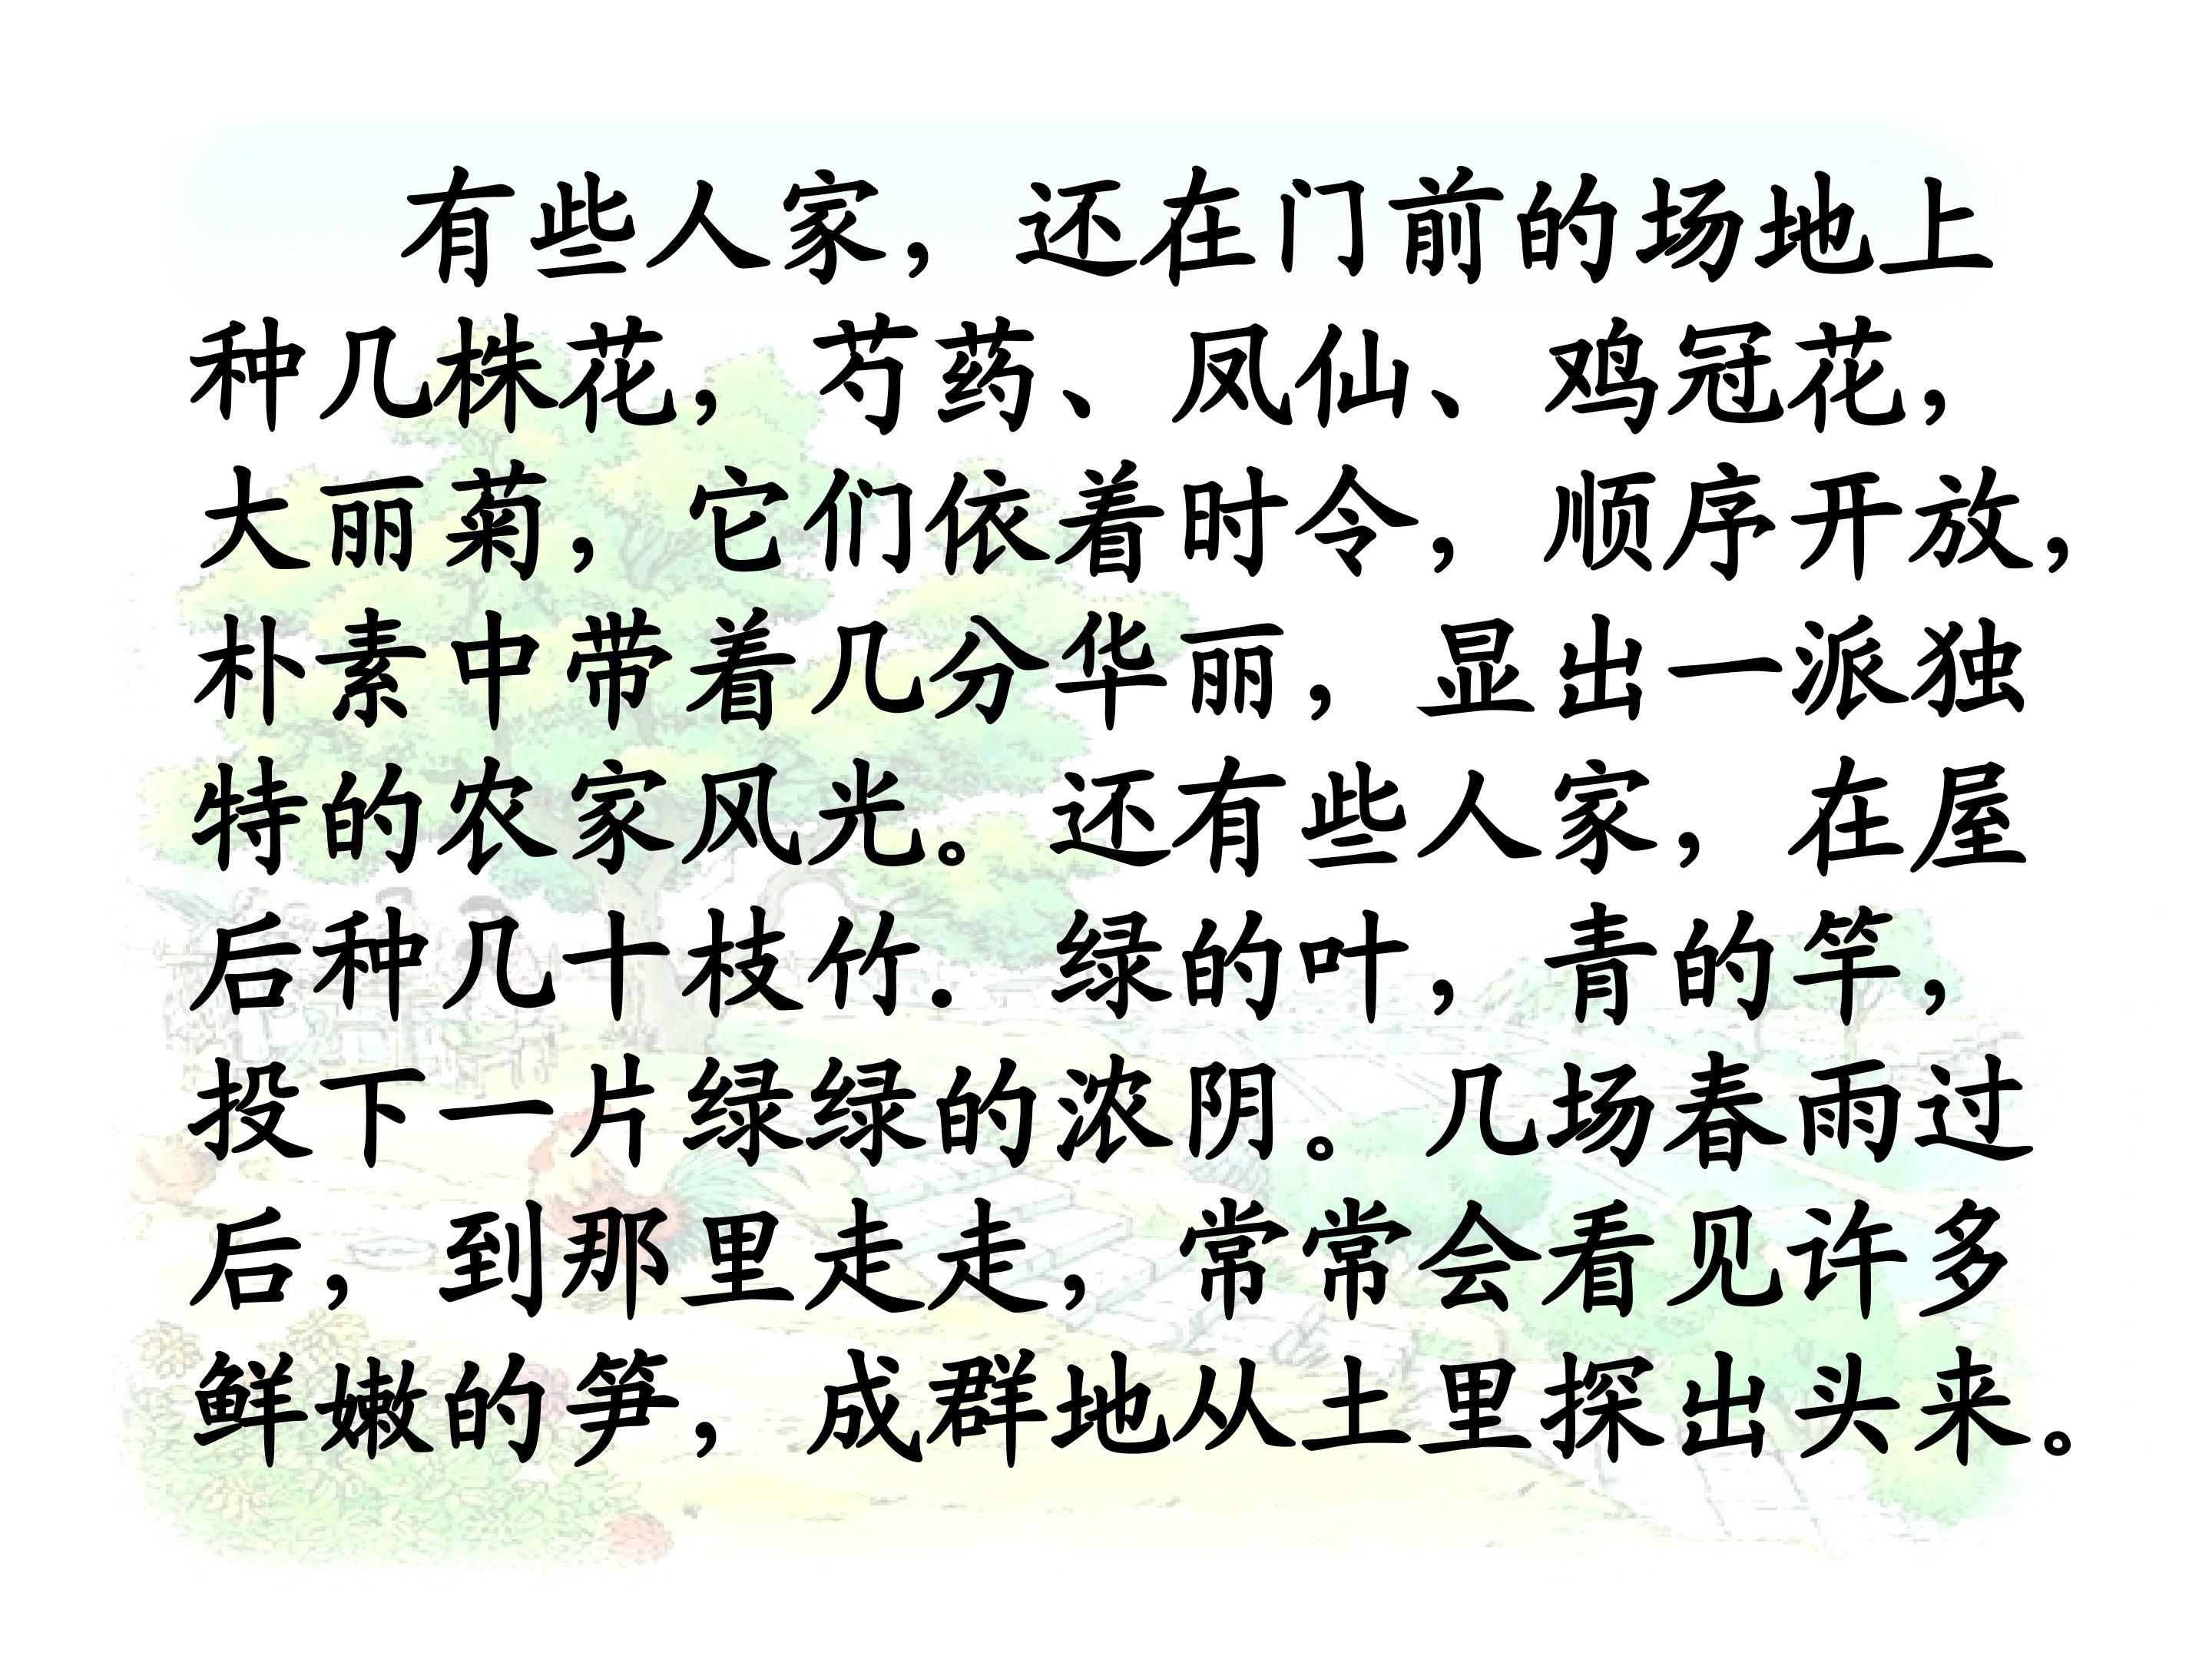 有些人家，还在门前的场地上
种几株花，芍药、凤仙、鸡冠花，
大丽菊，它们依着时令，顺序开放，
朴素中带着几分华丽，显出一派独
特的农家风光。还有些人家，在屋
后种几十枝竹．绿的叶，青的竿，
投下一片绿绿的浓阴。几场春雨过
后，到那里走走，常常会看见许多
鲜嫩的笋，成群地从土里探出头来。